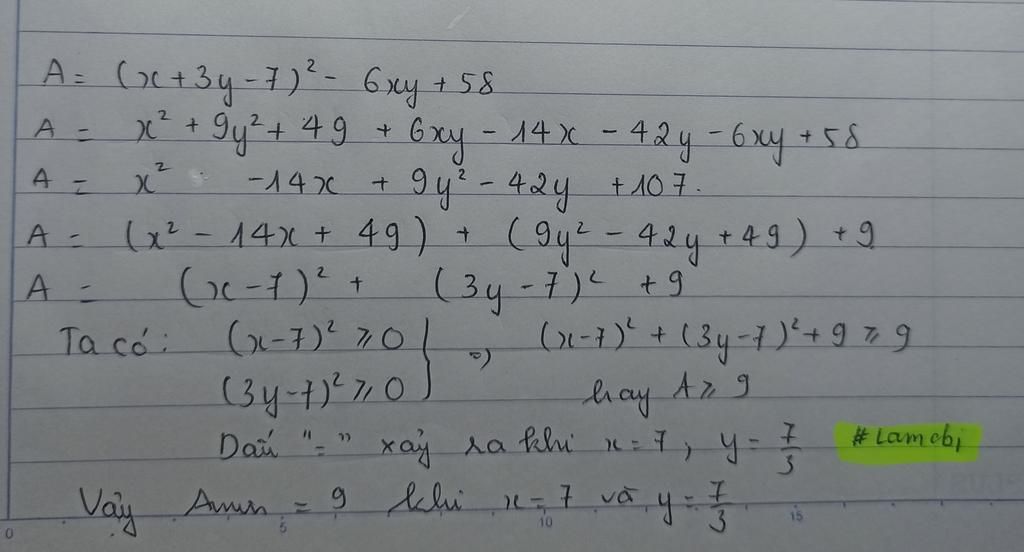 A = (x+3y-7)² - 6xy + 58
A = x² + 9y² + 49 + 6xy - 14x - 42y - 6xy + 58
A = x² -14x + 9y² - 42y + 107.
A = (x² - 14x + 49) + (9y² - 42y + 49) + 9
A = (x-7)² + (3y-7)² + 9
Ta có: (x-7)² ⩾ 0 } => (x-7)² + (3y-7)² + 9 ⩾ 9
(3y-7)² ⩾ 0 hay A ⩾ 9
Dấu "=" xảy ra khi x = 7, y = 7/3 #Lamebi
Vậy Amin = 9 khi x = 7 và y = 7/3
0 5 10 15